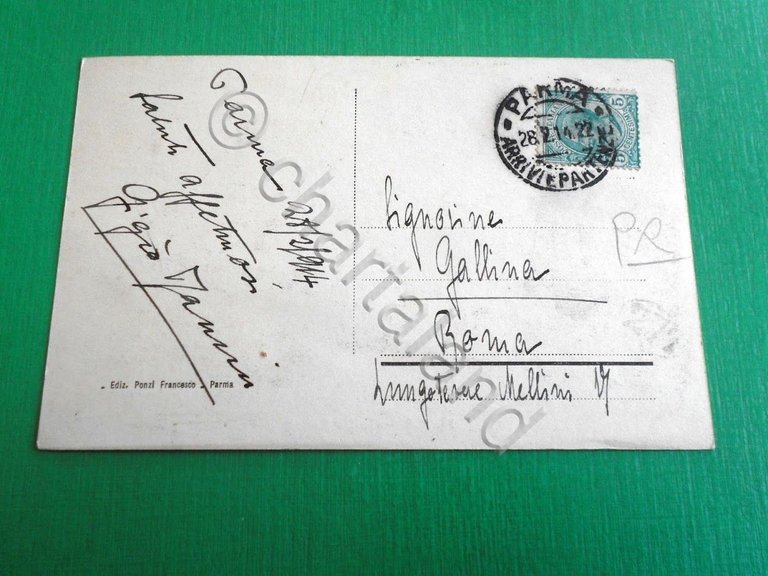 Parma 28/2/914
Saluti affettuosi
Gigió
Ediz. Ponzi Francesco - Parma
PARMA
28.2.14.22
ARRIVI E PARTENZE
5
Signorine
Gallina
Roma
Lungotevere Mellini 17
PR
© chartaland